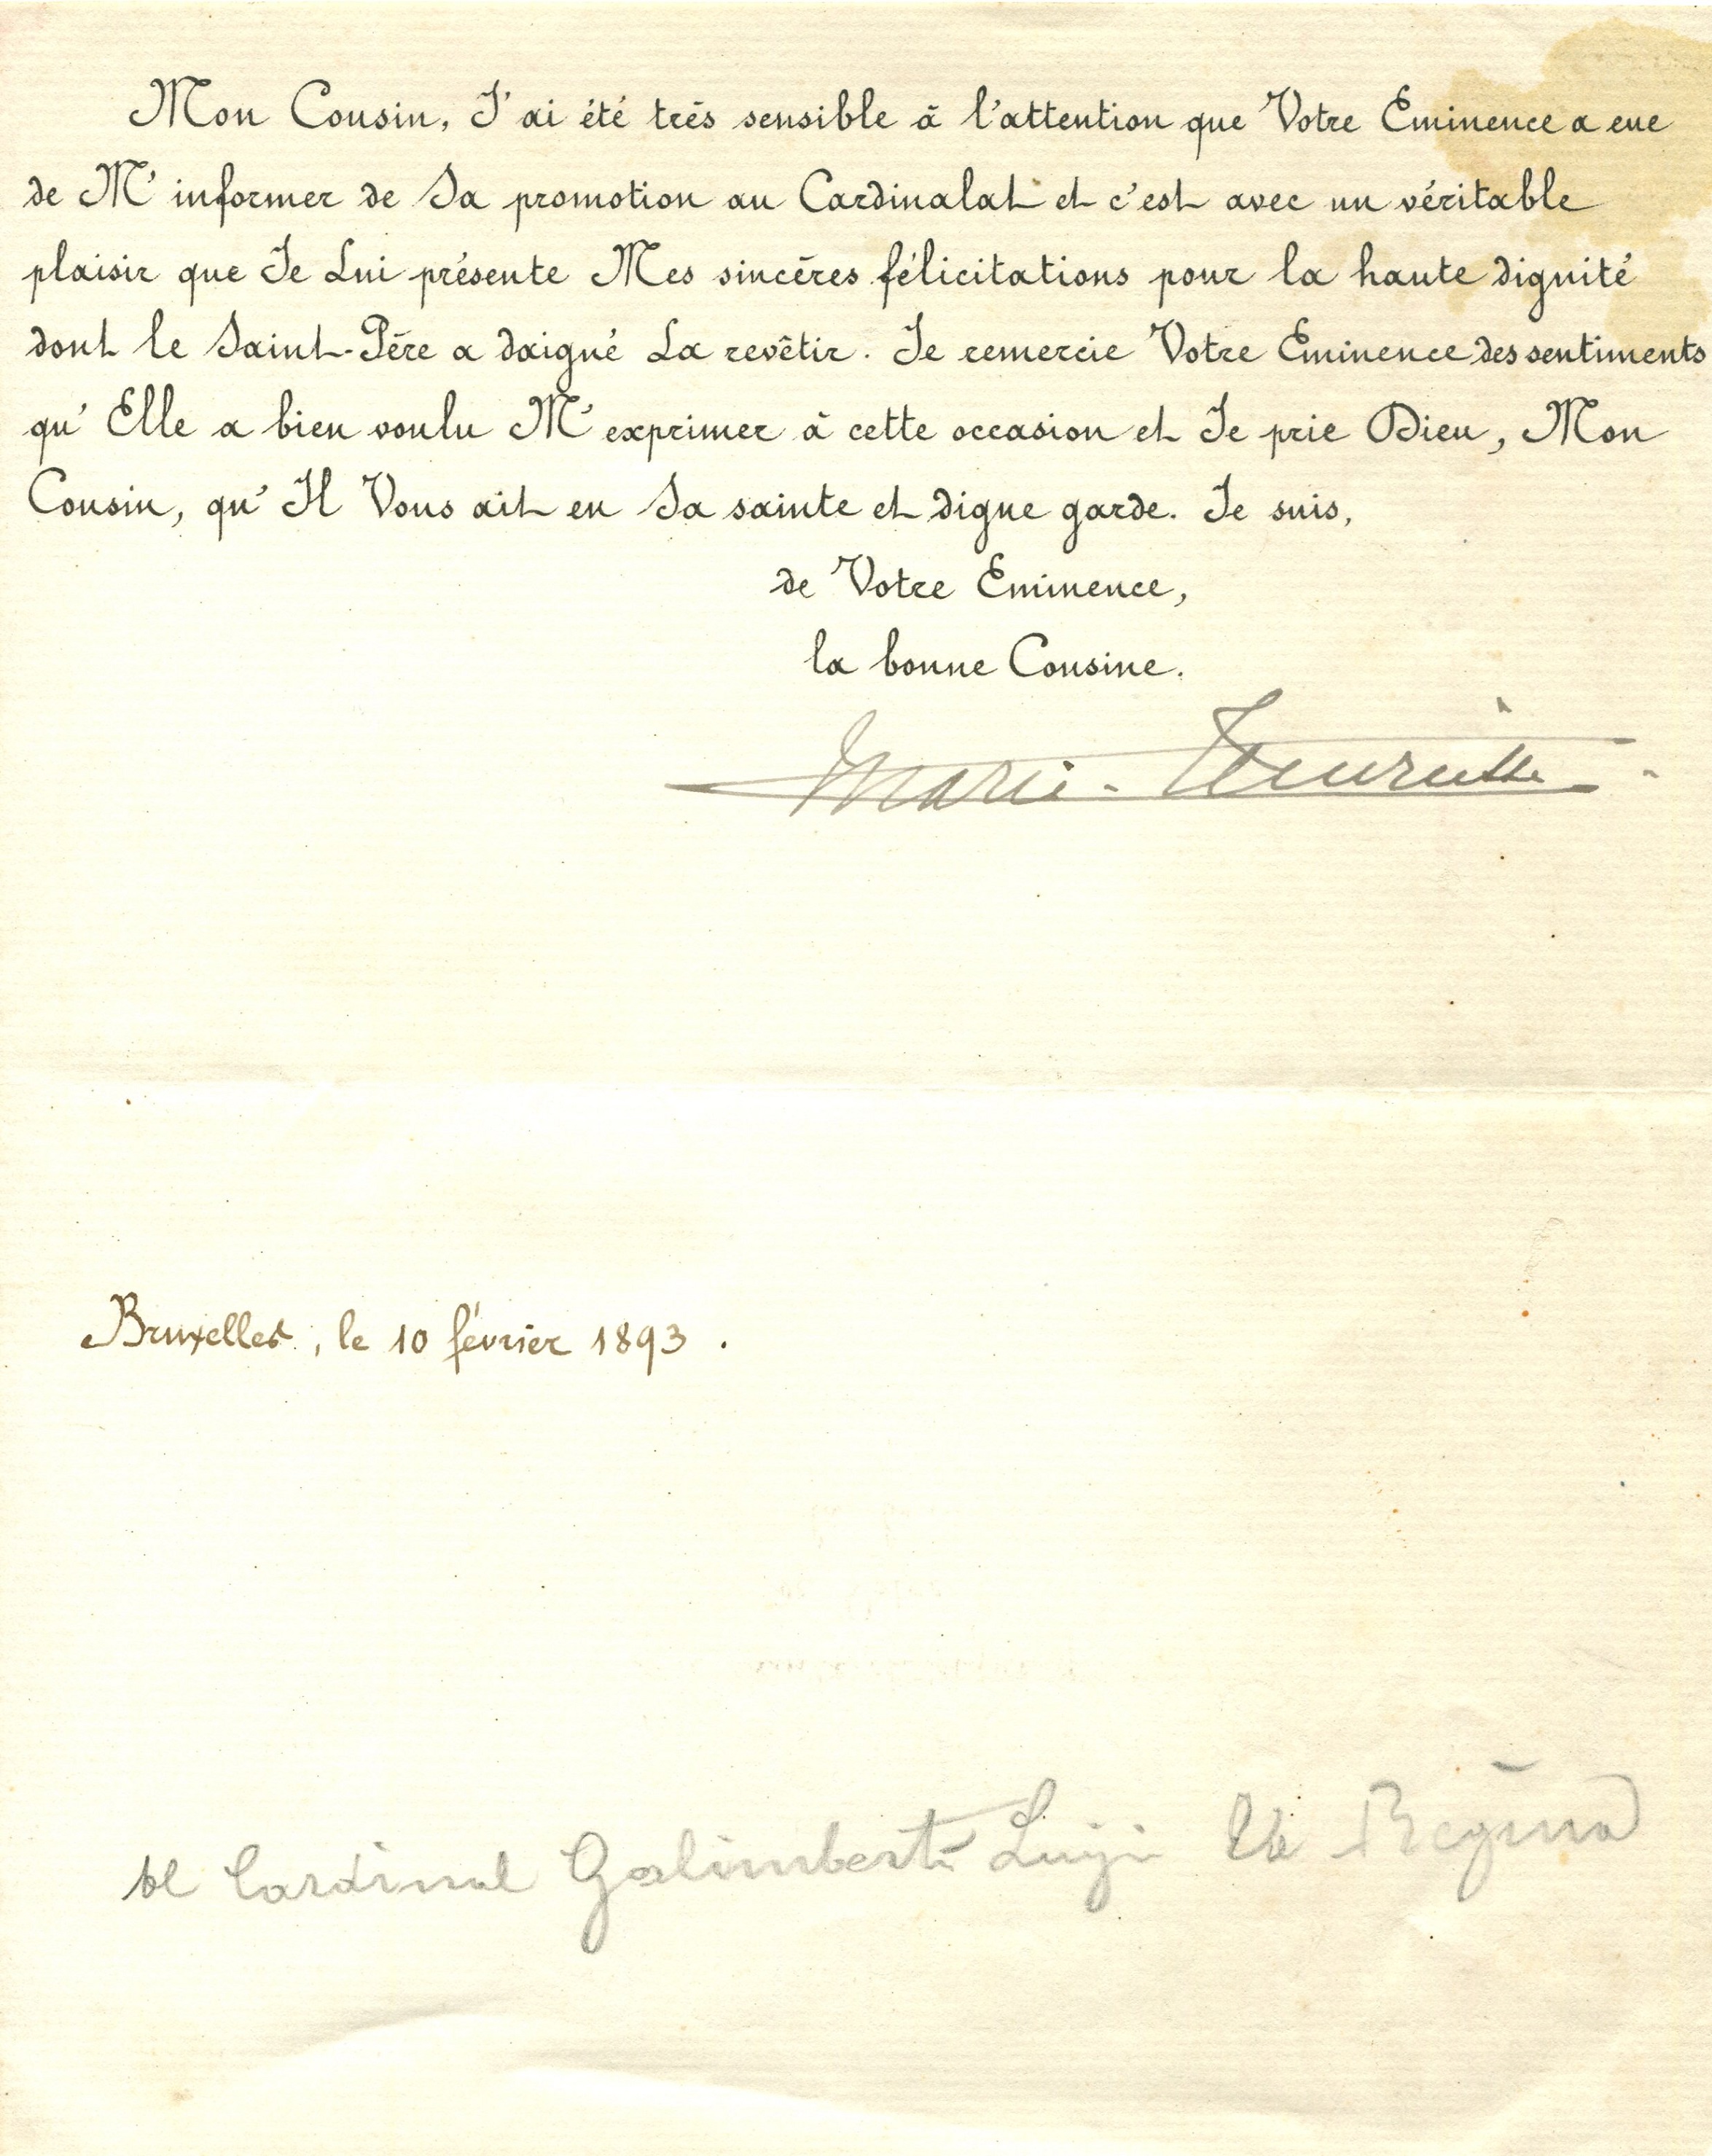 Mon Cousin, J'ai été très sensible à l'attention que Votre Eminence a eue
de M'informer de Sa promotion au Cardinalat et c'est avec un véritable
plaisir que Je Lui présente Mes sincères félicitations pour la haute dignité
dont le Saint-Père a daigné La revêtir. Je remercie Votre Eminence des sentiments
qu'Elle a bien voulu M'exprimer à cette occasion et Je prie Dieu, Mon
Cousin, qu'Il Vous ait en Sa sainte et digne garde. Je suis,
de Votre Eminence,
la bonne Cousine.
Marie-Henriette
Bruxelles, le 10 février 1893.
Al Cardinal Galimberti Luigi La Regina